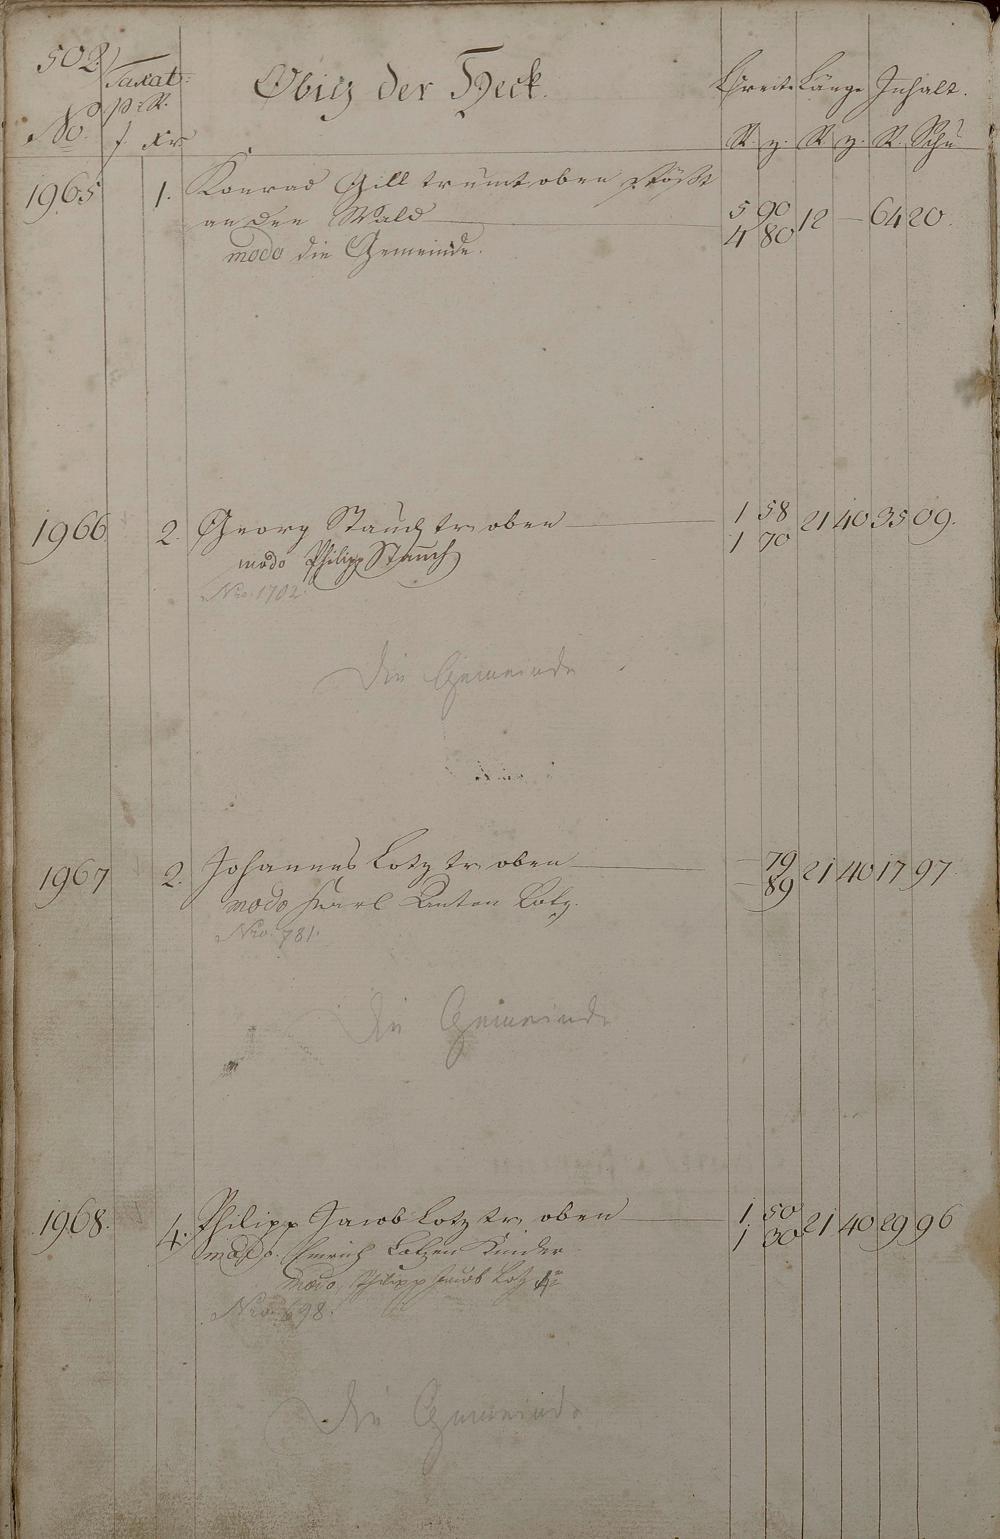 502
Taxat: Obig der Heck. Breite Länge Inhalt.
No. p. R.
f. xr R. z. R. z. R. Schu
1965 1. Konrad Gill trumt oben stößt
an den Wald 5 90 12 — 64 20.
4 80
modo die Gemeinde.
1966 2. Georg Stauch tr. oben 1 58 21 40 35 09.
1 70
modo Philipp Stauch
Nro. 1702.
Die Gemeinde
1967 2. Johannes Lotz tr. oben — 79 21 40 17 97.
— 89
modo Karl Anton Lotz.
Nro. 781.
Die Gemeinde
1968. 4. Philipp Jacob Lotz tr. oben 1 50 21 40 29 96
1 30
modo. Henrich Lotzen Kinder
modo Philipp Jacob Lotz
Nro. 698.
Die Gemeinde